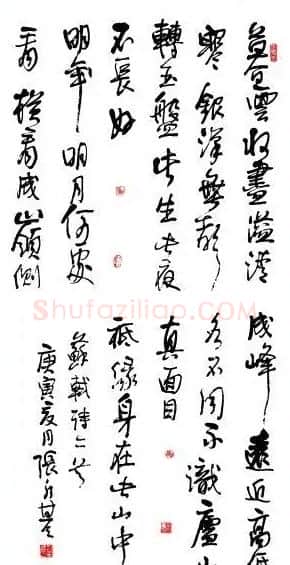 暮雲收盡溢清
寒銀漢無聲
轉玉盤此生此夜
不長好
明年明月何處
看橫看成嶺側
Shufaziliao.com
成峰遠近高低
各不同不識廬山
真面目
祗緣身在此山中
蘇軾詩二首
庚寅夏月張